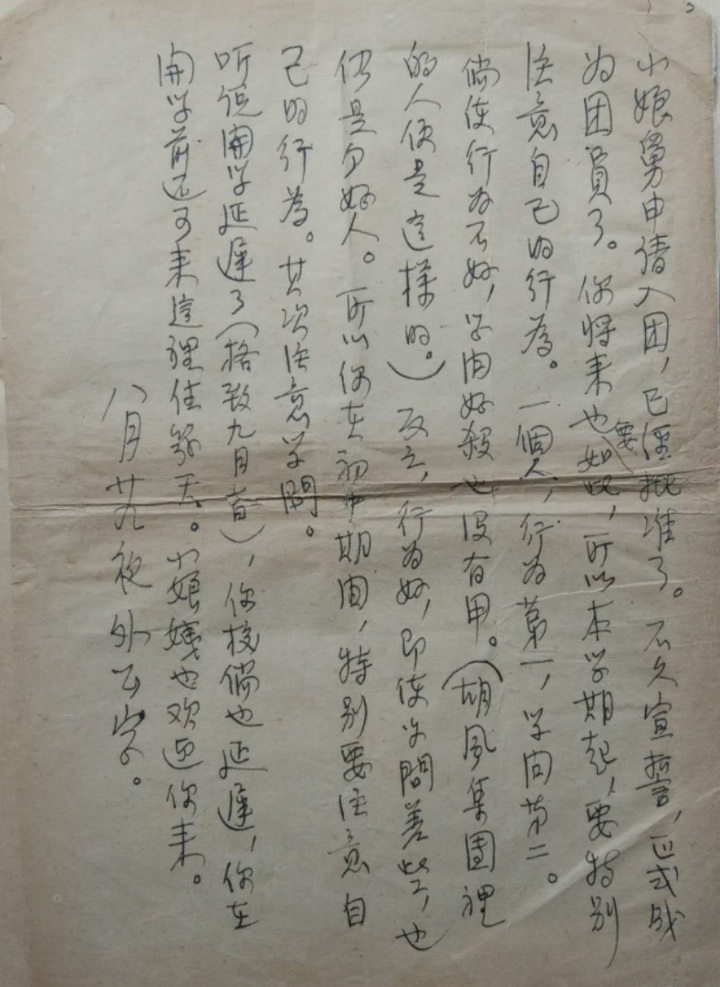 小娘舅申请入团，已經批准了。不久宣誓，正式成
为团員了。你将来也要如此，所以本学期起，要特别
注意自己的行為。一個人，行为第一，学问第二。
倘使行为不好，学问好殺也没有用。（胡风集团裡
的人便是這樣的。）反之，行为好，即使学問差些，也
仍是个好人。所以你在初中期间，特别要注意自
己的行為。其次注意学問。
听说開学延遲了（格致九月音），你校倘也延遲，你在
開学前还可来這裡住幾天。小娘姨也欢迎你来。
八月廿九夜 外公字。
3